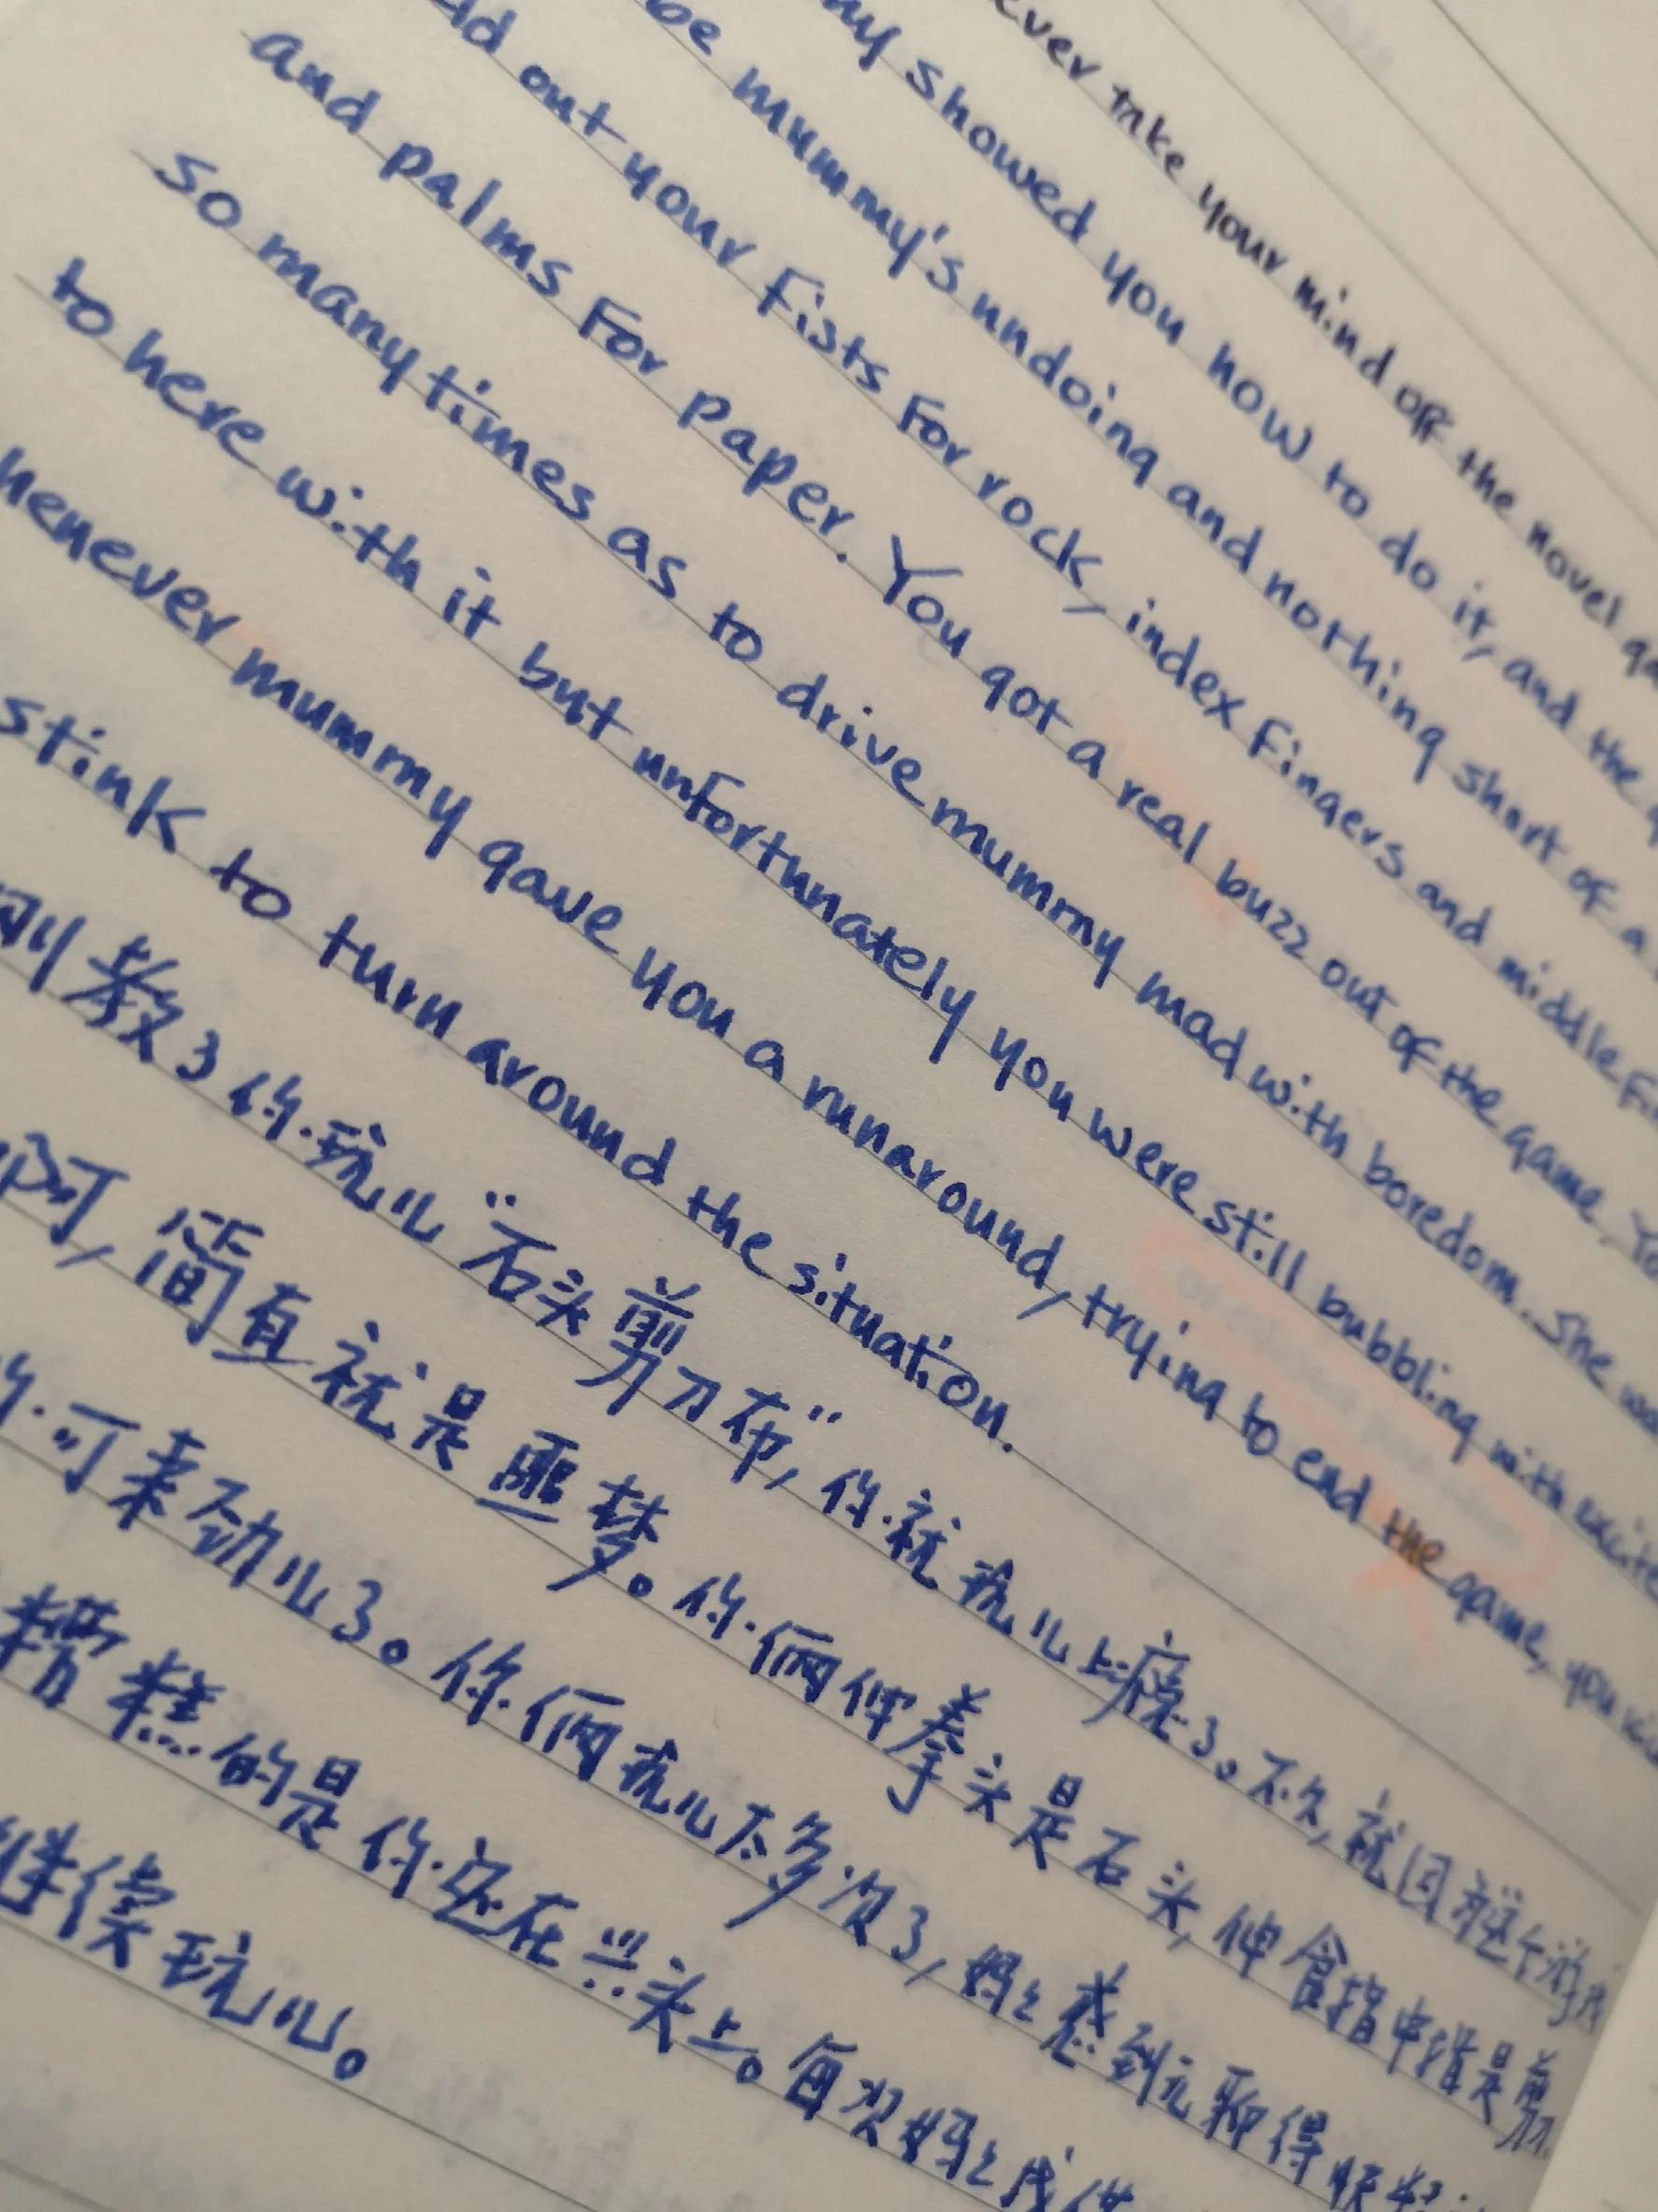 ever take your mind off the novel
my showed you how to do it, and the
be mummy's undoing and nothing short of a
out your fists for rock, index fingers and middle
and palms for paper. You got a real buzz out of the game.
so many times as to drive mummy mad with boredom. She
to here with it but unfortunately you were still bubbling with
henever mummy gave you a runaround, trying to end the game, you
stink to turn around the situation.
刚教了你玩儿“石头剪刀布”，你就玩儿上瘾了。不久，就因这个游
啊，简直就是噩梦。你俩伸拳头是石头，伸食指中指是剪
你可来劲儿了。你俩玩儿太多次了，妈妈感到无聊得快
糟糕的是你还在兴头上。每次妈妈
继续玩儿。